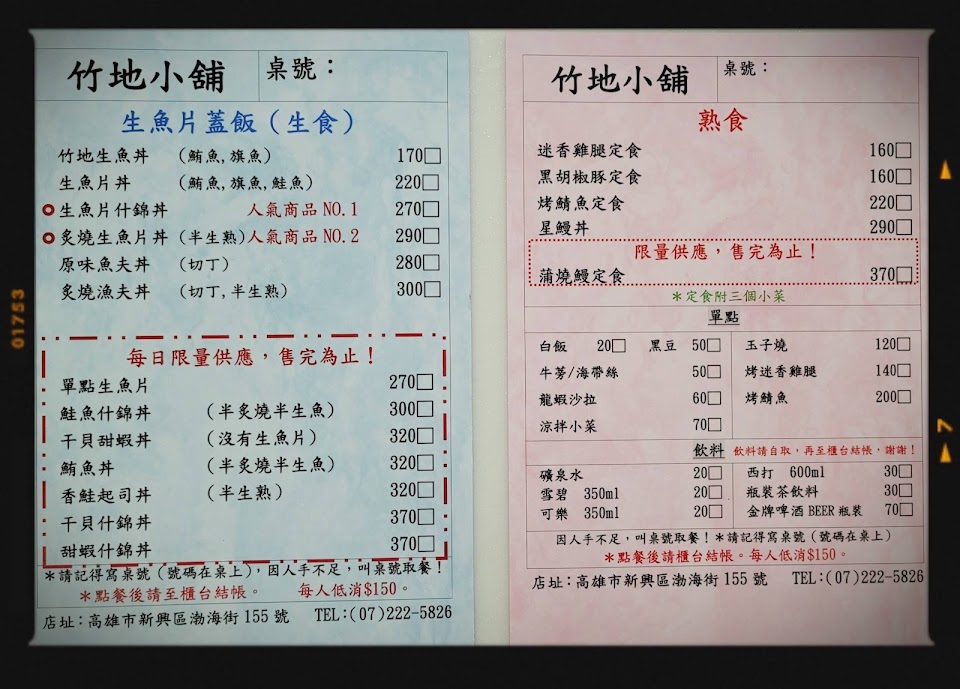 竹地小舖 桌號：
生魚片蓋飯（生食）
竹地生魚丼 （鮪魚,旗魚） 170□
生魚片丼 （鮪魚,旗魚,鮭魚） 220□
生魚片什錦丼 人氣商品 NO.1 270□
炙燒生魚片丼 （半生熟） 人氣商品 NO.2 290□
原味魚夫丼 （切丁） 280□
炙燒漁夫丼 （切丁,半生熟） 300□
每日限量供應，售完為止！
單點生魚片 270□
鮭魚什錦丼 （半炙燒半生魚） 300□
干貝甜蝦丼 （沒有生魚片） 320□
鮪魚丼 （半炙燒半生魚） 320□
香鮭起司丼 （半生熟） 320□
干貝什錦丼 370□
甜蝦什錦丼 370□
＊請記得寫桌號（號碼在桌上），因人手不足，叫桌號取餐！
＊點餐後請至櫃台結帳。 每人低消$150。
店址：高雄市新興區渤海街 155 號 TEL：(07)222-5826
竹地小舖 桌號：
熟食
迷香雞腿定食 160□
黑胡椒豚定食 160□
烤鯖魚定食 220□
星鰻丼 290□
限量供應，售完為止！
蒲燒鰻定食 370□
＊定食附三個小菜
單點
白飯 20□ 黑豆 50□ 玉子燒 120□
牛蒡/海帶絲 50□ 烤迷香雞腿 140□
龍蝦沙拉 60□ 烤鯖魚 200□
涼拌小菜 70□
飲料 飲料請自取，再至櫃台結帳，謝謝！
礦泉水 20□ 西打 600ml 30□
雪碧 350ml 20□ 瓶裝茶飲料 30□
可樂 350ml 20□ 金牌啤酒 BEER 瓶裝 70□
因人手不足，叫桌號取餐！＊請記得寫桌號（號碼在桌上）
＊點餐後請櫃台結帳。每人低消$150。
店址：高雄市新興區渤海街 155 號 TEL：(07)222-5826
01753
7